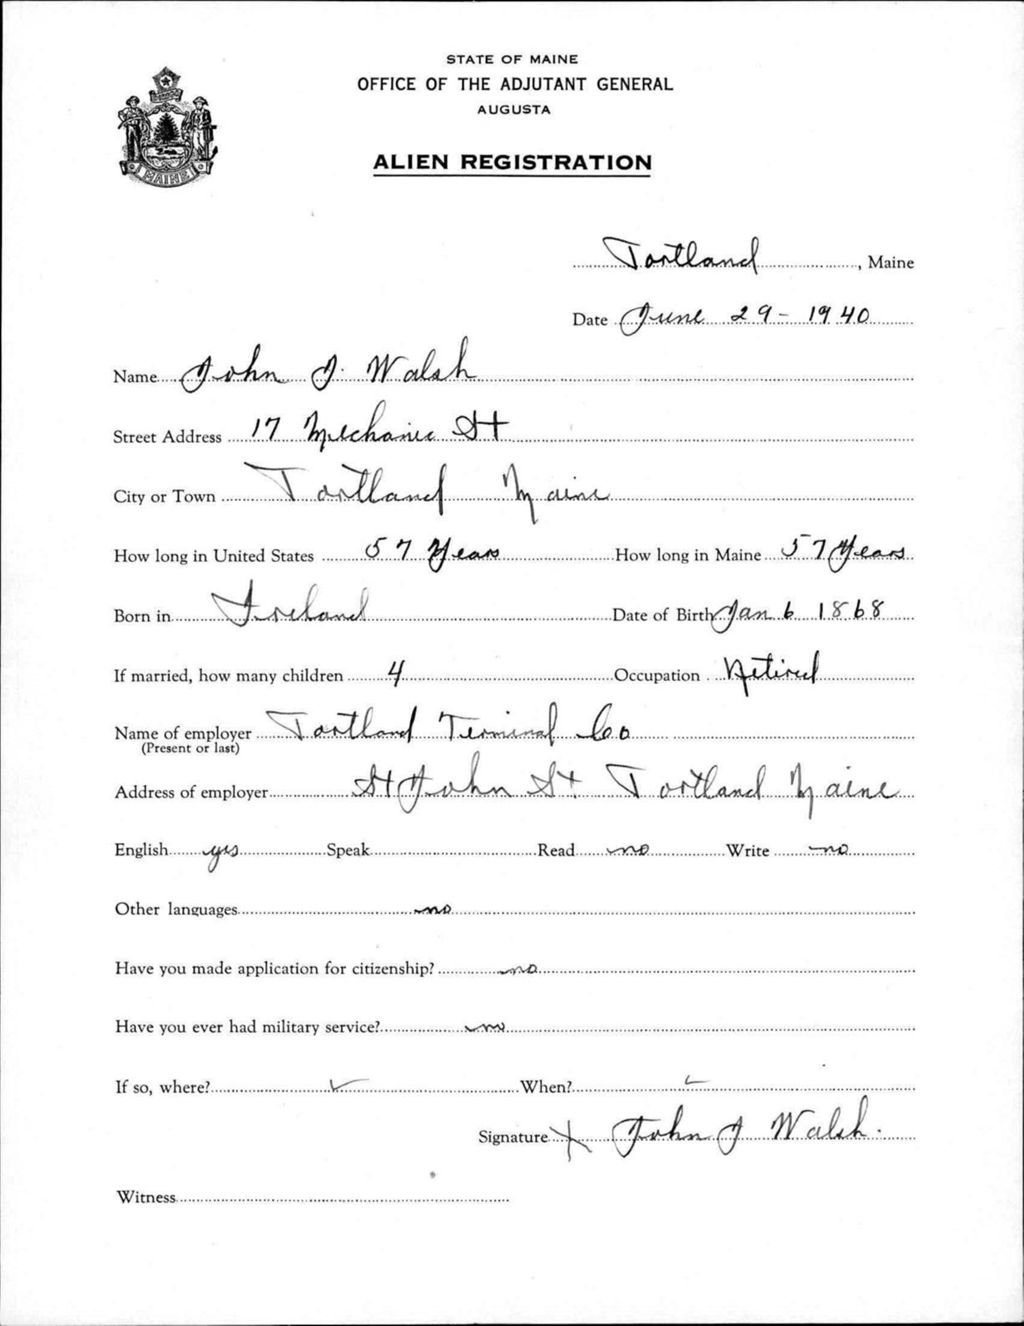 STATE OF MAINE
OFFICE OF THE ADJUTANT GENERAL
AUGUSTA
ALIEN REGISTRATION
MAINE
Portland, Maine
Date June 29 - 1940
Name John J. Walsh
Street Address 17 Mechanic St
City or Town Portland Maine
How long in United States 57 Years How long in Maine 57 Years
Born in Ireland Date of Birth Jan 6 1868
If married, how many children 4 Occupation Retired
Name of employer Portland Terminal Co
(Present or last)
Address of employer St John St Portland Maine
English yes Speak Read no Write no
Other languages no
Have you made application for citizenship? no
Have you ever had military service? no
If so, where? ✓ When? ✓
Signature X John J Walsh.
Witness